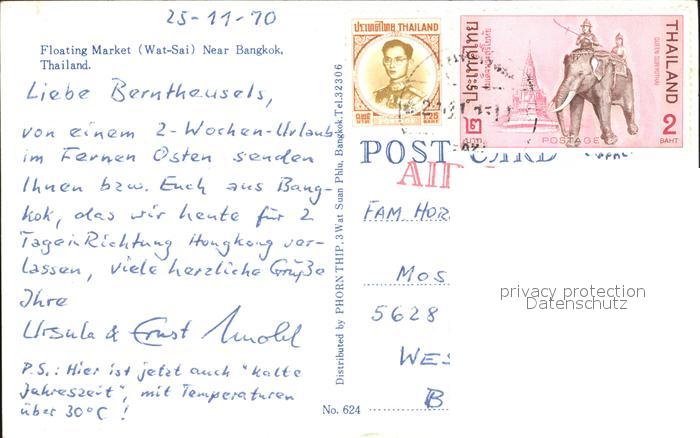 25-11-70
Floating Market (Wat-Sai) Near Bangkok,
Thailand.
Liebe Berntheusels,
von einem 2-Wochen-Urlaub
im Fernen Osten senden
Ihnen bzw. Euch aus Bang-
kok, das wir heute für 2
Tage in Richtung Hongkong ver-
lassen, viele herzliche Grüße
Ihre
Ursula & Ernst
P.S.: Hier ist jetzt auch "kalte
Jahreszeit", mit Temperaturen
über 30°C !
Distributed by PHORN THIP, 3 Wat Suan Phlu, Bangkok. Tel. 32306
No. 624
ประเทศไทย THAILAND
POSTAGE
1.25
ประเทศไทย
THAILAND
๒
บาท
POSTAGE
2
BAHT
POST CARD
AIR
FAM HOR
MOS
5628
WES
B
privacy protection
Datenschutz